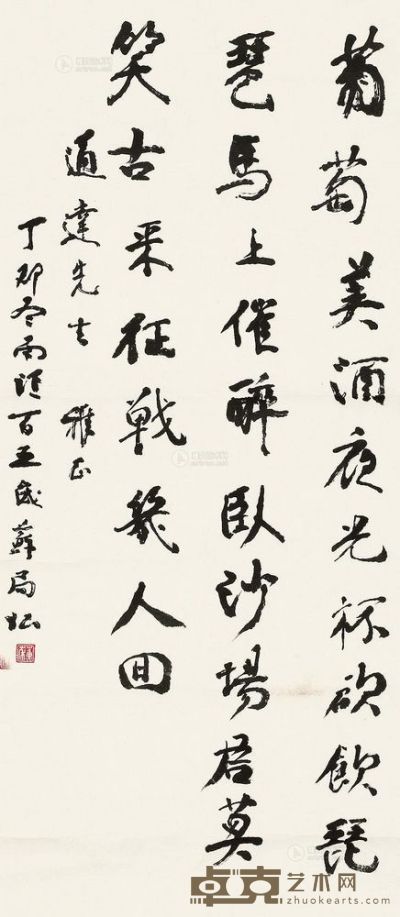 葡萄美酒夜光杯欲飲琵
琶馬上催醉臥沙場君莫
笑古来征戰幾人回
通達先生 雅正
丁卯冬南滙百五歲蘇局仙
卓克艺术网
zhuokearts.com